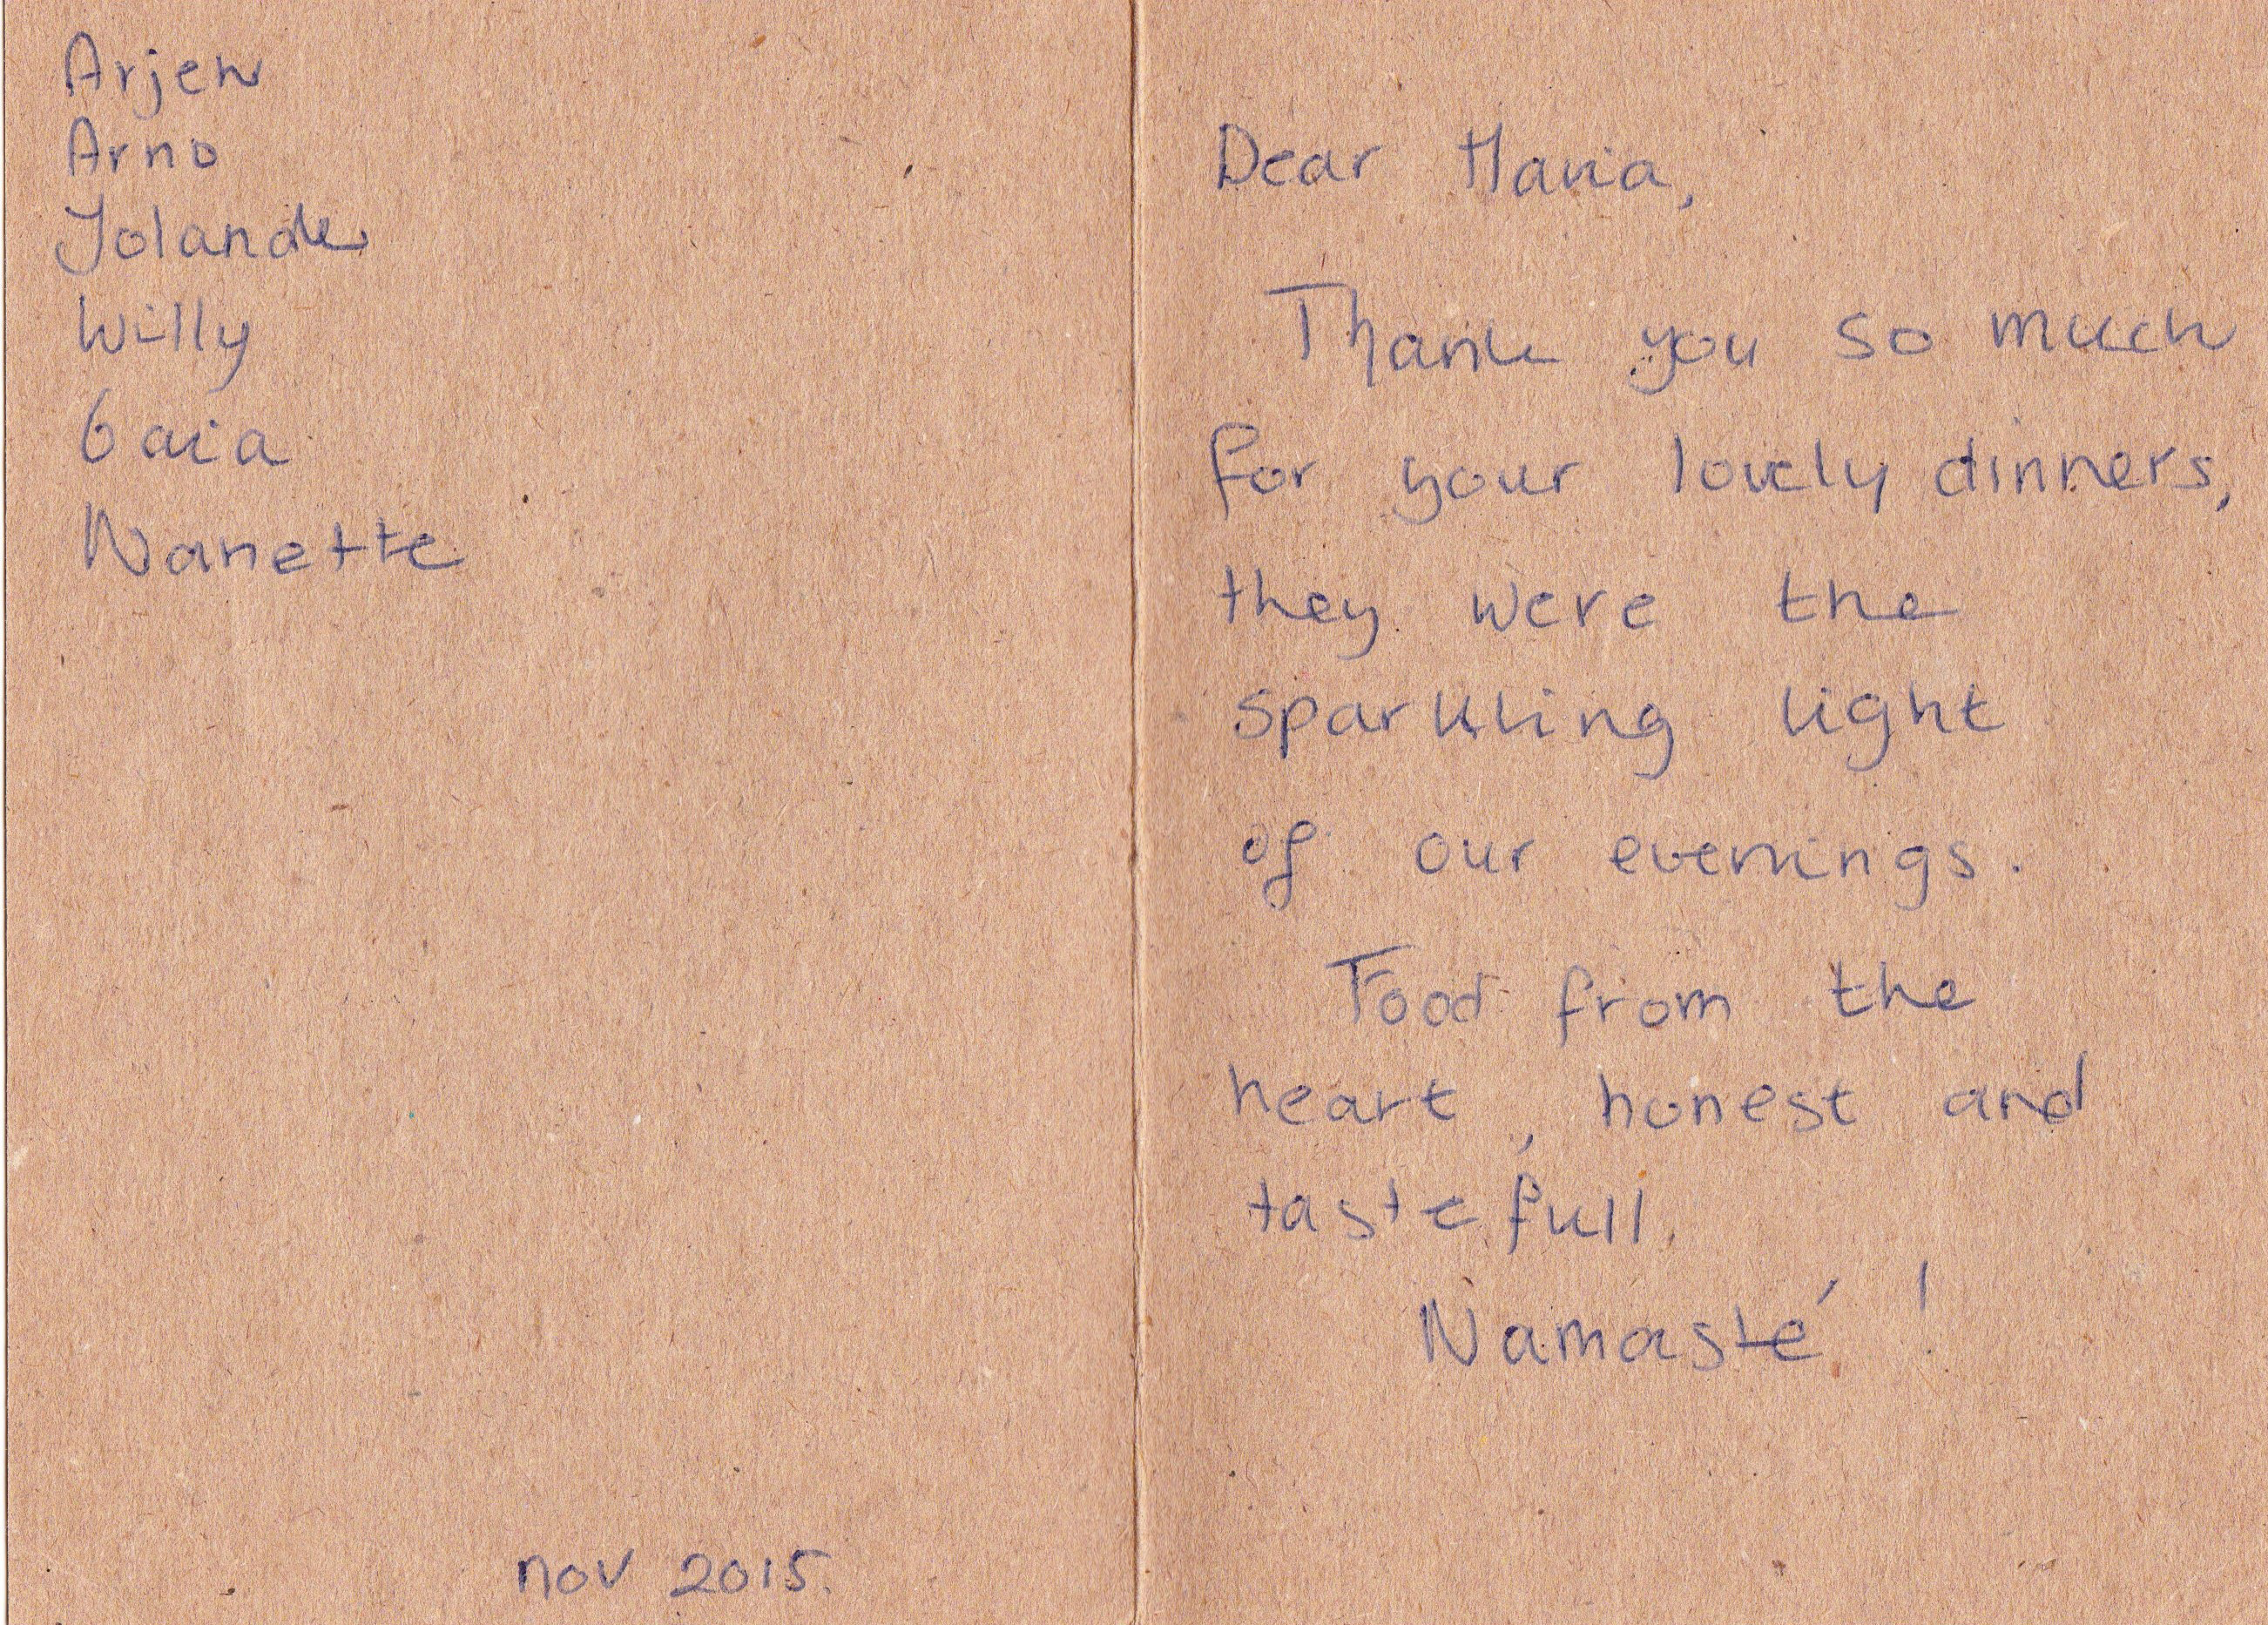 Arjen
Arno
Jolande
Willy
Gaia
Nanette
nov 2015.
Dear Maria,
Thank you so much
for your lovely dinners,
they were the
sparkling light
of our evenings.
Food from the
heart, honest and
tastefull.
Namasté !